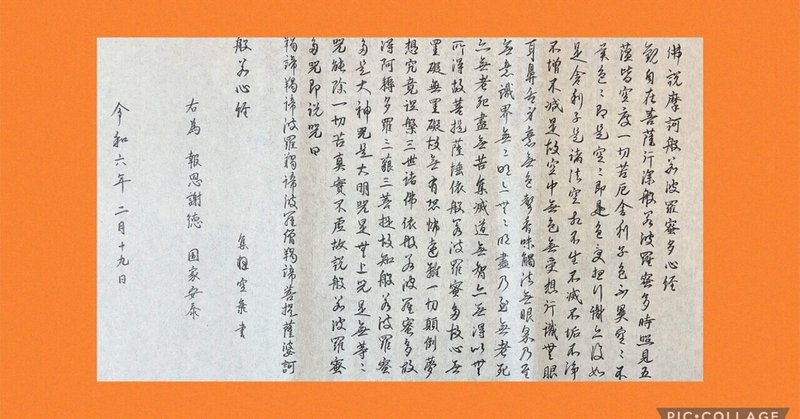 佛説摩訶般若波羅蜜多心経
観自在菩薩行深般若波羅蜜多時照見五
蘊皆空度一切苦厄舎利子色不異空々不
異色々即是空々即是色受想行識亦復如
是舎利子是諸法空相不生不滅不垢不浄
不増不減是故空中無色無受想行識無眼
耳鼻舌身意無色聲香味觸法無眼界乃至
無意識界無々明亦無々明盡乃至無老死
亦無老死盡無苦集滅道無智亦無得以無
所得故菩提薩埵依般若波羅蜜多故心無
罣礙無罣礙故無有恐怖遠離一切顛倒夢
想究竟涅槃三世諸佛依般若波羅蜜多故
得阿耨多羅三藐三菩提故知般若波羅蜜
多是大神呪是大明呪是無上呪是無等々
呪能除一切苦真實不虚故説般若波羅蜜
多呪即説呪曰
羯諦羯諦波羅羯諦波羅僧羯諦菩提薩婆訶
般若心経
書
右為 報恩謝徳 国家安泰
令和六年 二月十九日
PIC•COLLAGE